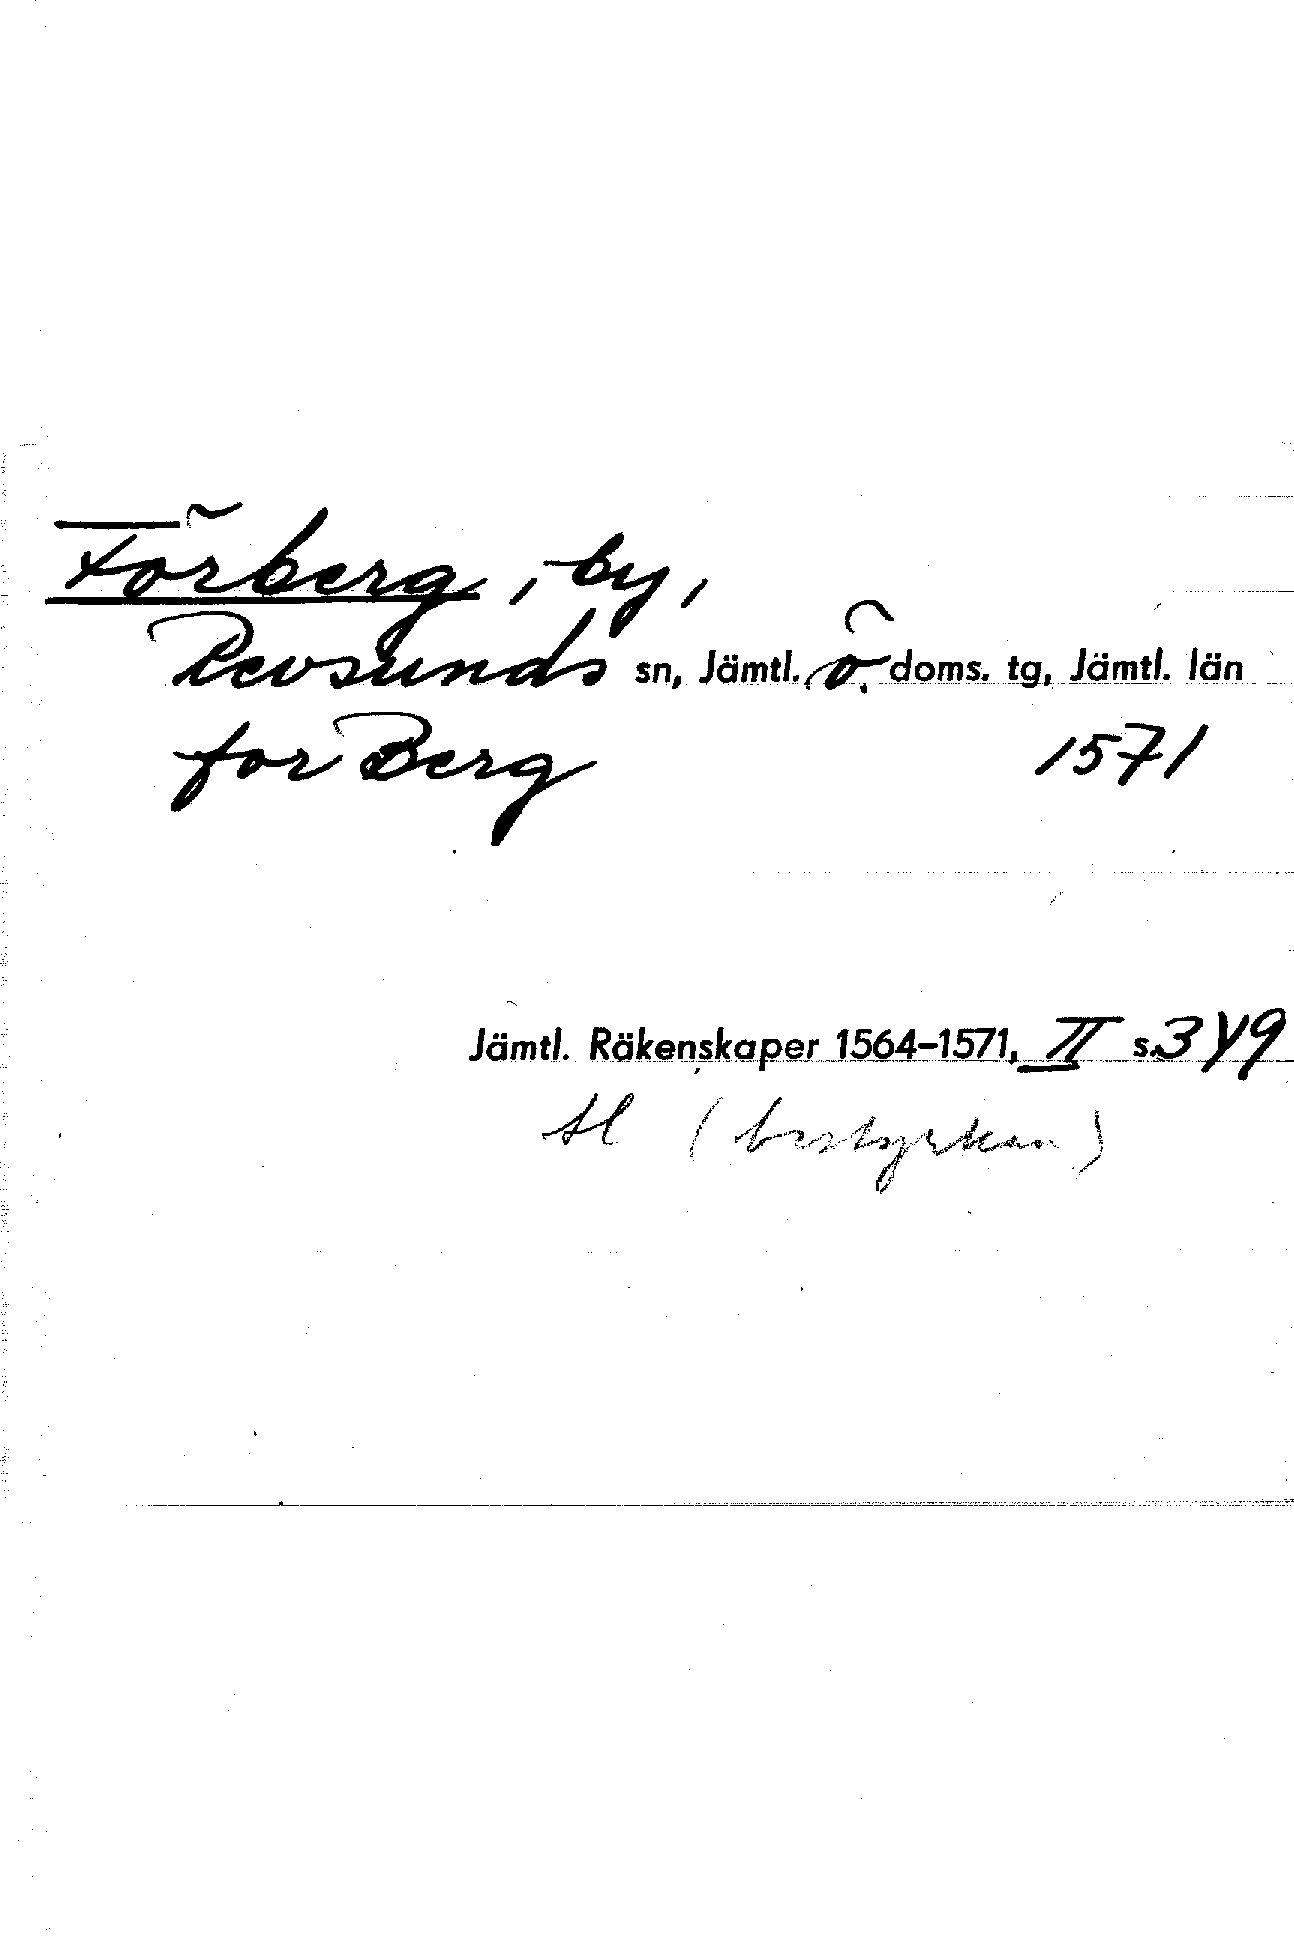 Förberg, by,
Revsunds sn, Jämtl. ö. doms. tg, Jämtl. län
for Berg 1571
Jämtl. Räkenskaper 1564–1571, II s. 349
Al (bestyrkan)